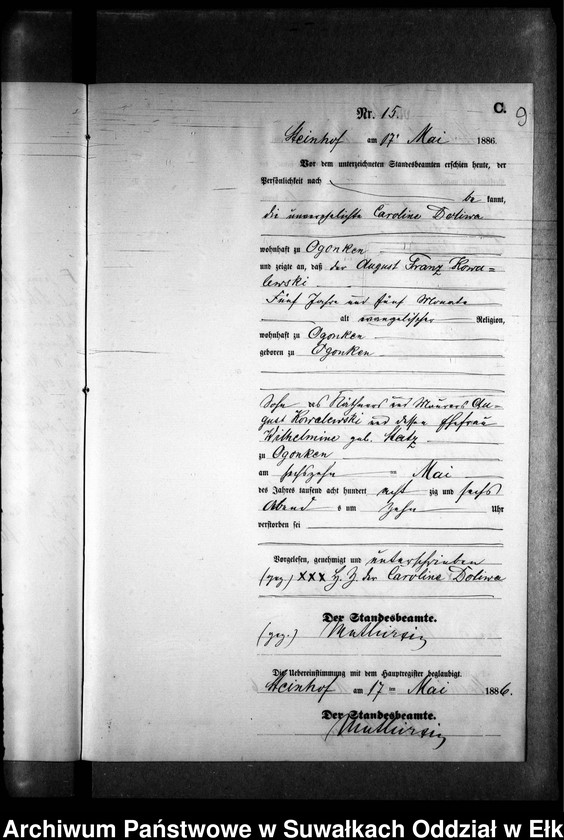 C.
9
Nr. 15.
Steinhof am 17 Mai 1886.
Vor dem unterzeichneten Standesbeamten erschien heute, der
Persönlichkeit nach
be kannt,
die unverehelichte Caroline Doliwa
wohnhaft zu Ogonken
und zeigte an, daß der August Franz Kowa=
lewski
Fünf Jahre und fünf Monate
alt evangelischer Religion,
wohnhaft zu Ogonken
geboren zu Ogonken
Sohn des Käthners und Maurers Au=
gust Kowalewski und dessen Ehefrau
Wilhelmine geb.
zu Ogonken
am sechszehn = Mai
des Jahres tausend acht hundert acht zig und sechs
Abend s um zehn Uhr
verstorben sei
Vorgelesen, genehmigt und unterschrieben
(gez) XXX H. Z. der Caroline Doliwa
Der Standesbeamte.
(gez.)
Die Uebereinstimmung mit dem Hauptregister beglaubigt.
Steinhof am 17 = Mai 1886.
Der Standesbeamte.
Archiwum Państwowe w Suwałkach Oddział w Ełk